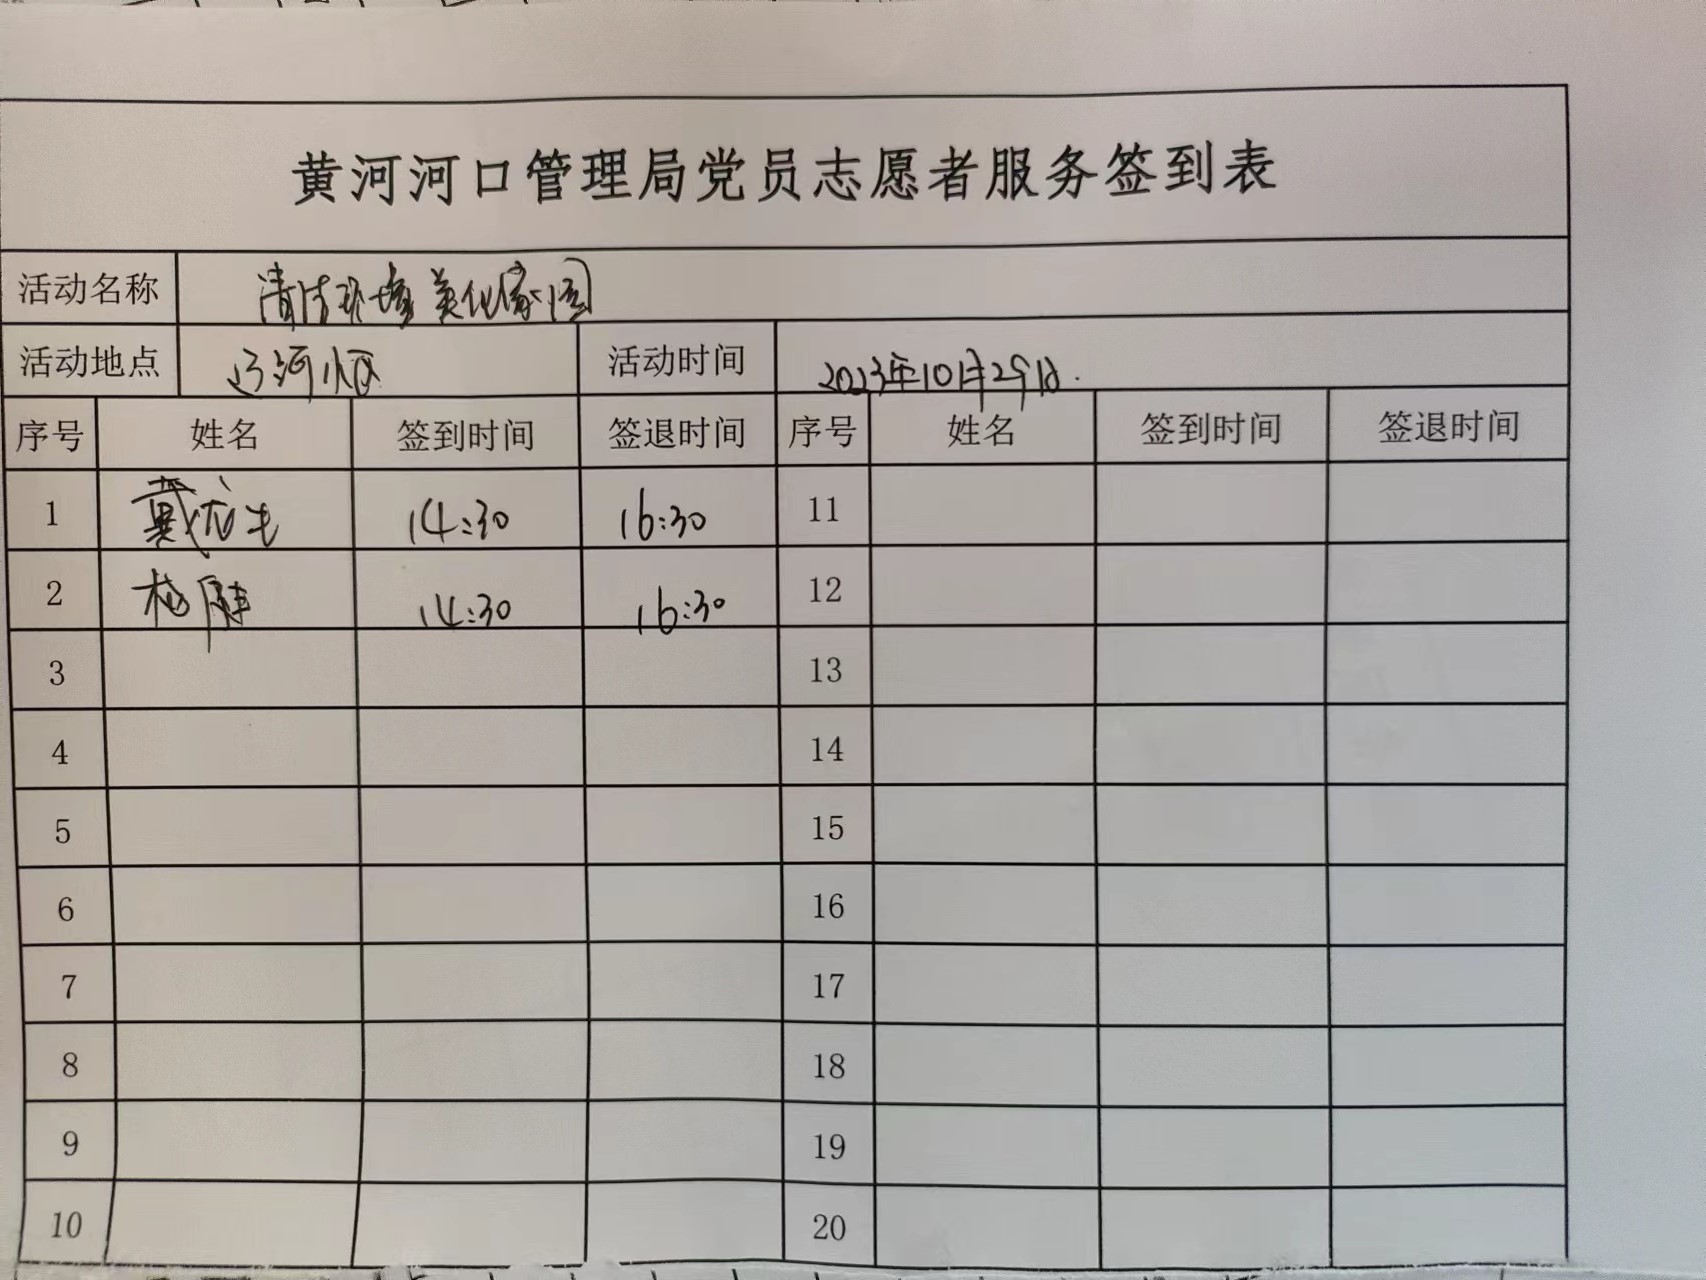 黄河河口管理局党员志愿者服务签到表
活动名称 清洁环境 美化家园
活动地点 辽河 活动时间 2023年10月29日.
序号 姓名 签到时间 签退时间 序号 姓名 签到时间 签退时间
1 戴龙 14:30 16:30 11
2 14:30 16:30 12
3 13
4 14
5 15
6 16
7 17
8 18
9 19
10 20